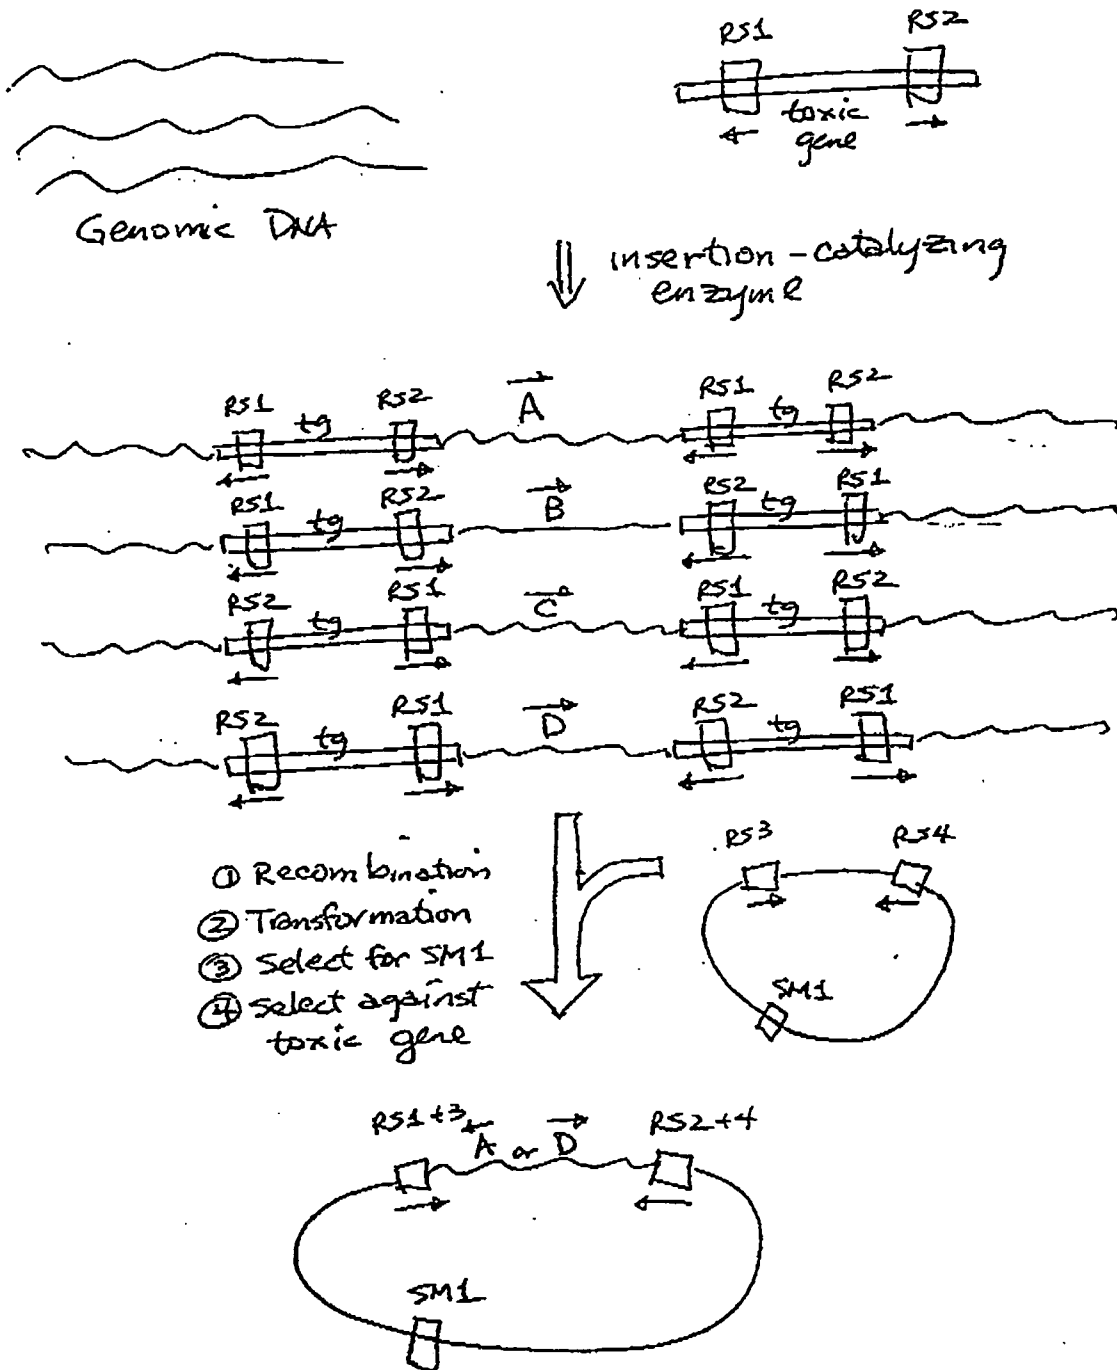 RS1
RS2
toxic
gene
Genomic DNA
insertion-catalyzing
enzyme
RS1 tg RS2 A RS1 tg RS2
RS1 tg RS2 B RS2 tg RS1
RS2 tg RS1 C RS1 tg RS2
RS2 tg RS1 D RS2 tg RS1
① Recombination
② Transformation
③ Select for SM1
④ Select against
toxic gene
RS3
RS4
SM1
RS1+3
A or D
RS2+4
SM1